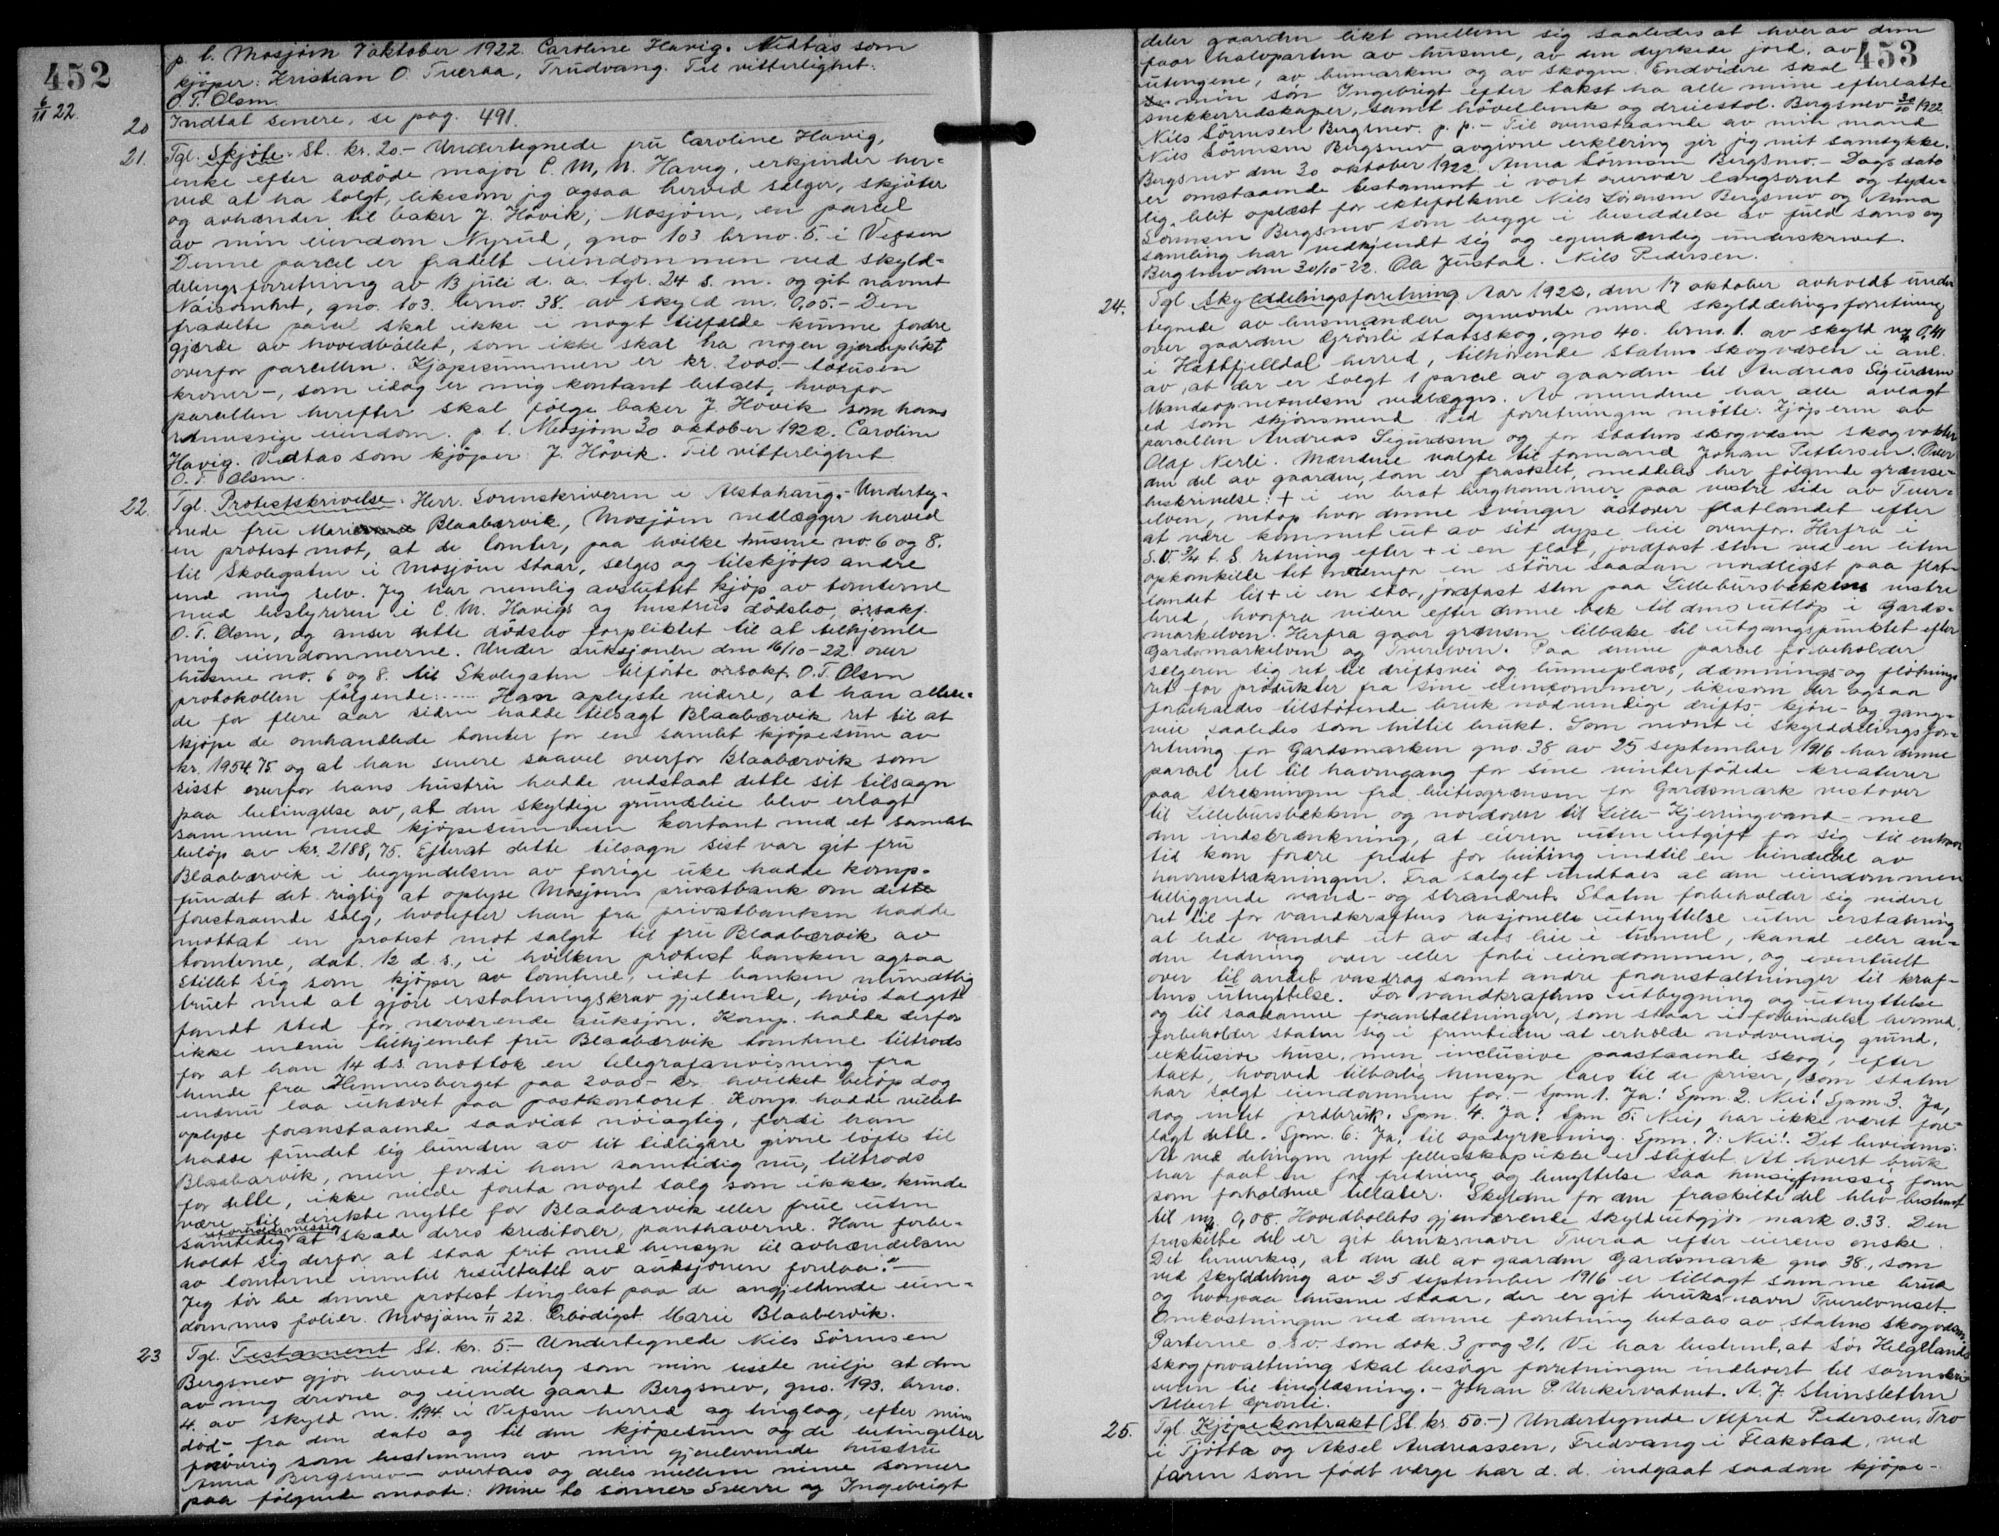 452
6/11 22.
p. t. Mosjøen 7 oktober 1922. Caroline Havig. Vedtas som
kjøper: Kristian O. Tveraa, Trudvang. Til vitterlighet:
O. T. Olsen.
20 Indtat senere, se pag. 491.
21. Tgl. Skjøte. St. kr. 20.- Undertegnede fru Caroline Havig,
enke efter avdøde major C. M. Havig, erkjender her-
ved at ha solgt, likesom jeg ogsaa herved sælger, skjøter
og avhænder til baker J. Høvik, Mosjøen, en parcel
av min eiendom Nyrud, gno 103 brno. 5. i Vefsen
Denne parcel er fradelt eiendommen ved skyld-
delingsforretning av 13 juli d. a. tgl. 24 s. m. og git navnet
Nøisomhet, gno. 103. brno. 38. av skyld m. 0,05.- Den
fradelte parcel skal ikke i nogt tilfælde kunne fordre
gjærde av hovedbøllet, som ikke skal ha nogen gjerdeplikt
overfor parcellen. Kjøpesummen er kr. 2000.- totusen
kroner -, som idag er mig kontant betalt, hvorfor
parcellen herefter skal følge baker J. Høvik som hans
retmessige eiendom. p. t. Mosjøen 30 oktober 1922. Caroline
Havig. Vedtas som kjøper: J. Høvik. Til vitterlighet
O. T. Olsen.
22. Tgl. Protestskrivelse. Herr Sorenskriveren i Alstahaug.- Underteg-
nede fru Marie Blaabærvik, Mosjøen nedlægger herved
en protest mot, at de tomter, paa hvilke husene no. 6 og 8.
til Skolegaten i Mosjøen staar, selges og tilskjøtes andre
end mig selv. Jeg har nemlig avsluttet kjøp av tomterne
med bestyreren i C. M. Havigs og hustrus dødsbo, orsakf.
O. T. Olsen, og anser dette dødsbo forpliktet til at tilhjemle
mig eiendommerne. Under auksjonen den 16/10-22 over
husene no. 6 og 8. til Skolegaten tilførte orsakf. O. T. Olsen
protokollen følgende: ..... Han oplyste videre, at han allere-
de for flere aar siden hadde tilsagt Blaabærvik ret til at
kjøpe de omhandlede tomter for en samlet kjøpesum av
kr. 1954,75 og at han senere saavel overfor Blaabærvik som
sisst overfor hans hustru hadde vedstaat dette sit tilsagn
paa betingelse av, at den skyldige grundleie blev erlagt
sammen med kjøpesummen kontant med et samlet
beløp av kr. 2188,75. Efterat dette tilsagn sist var git fru
Blaabærvik i begyndelsen av forrige uke hadde komp.
fundet det rigtig at oplyse Mosjøens privatbank om dette
forestaaende salg, hvorefter han fra privatbanken hadde
mottat en protest mot salget til fru Blaabærvik av
tomterne, dat. 12 d. s., i hvilken protest banken ogsaa
stillet sig som kjøper av tomtene, idet banken mundtlig
truet med at gjøre erstatningskrav gjeldende, hvis salget
fandt sted før nærværende auksjon. Komp. hadde derfor
ikke endnu tilhjemlet fru Blaabærvik tomtene tiltrods
for at han 14 d.s. mottok en telegrafanvisning fra
hende fra Hemnesberget paa 2000.- kr. hvilket beløp dog
endnu laa uhævet paa postkontoret. Komp. hadde villet
oplyse foranstaaende saavidt nøiagtig, fordi han
hadde fundet sig bunden av sit tidligere givne løfte til
Blaabærvik, men fordi han samtidig nu, tiltrods
for dette, ikke vilde foreta noget salg som ikke kunde
være til direkte nytte for Blaabærvik eller frue uten
samtidig at skade deres kreditorer, panthaverne. Han forbe-
holdt sig derfor at staa frit med hensyn til avhændelsen
av tomterne inntil resultatet av auksjonen forelaa".-
Jeg tør be denne protest tinglæst paa de angjeldende eien-
dommes folier. Mosjøen 1/11 22. Ærbødigst Marie Blaabervik.
23 Tgl. Testament St. kr. 5- Undertegnede Nils Sørensen
Bergsnev gjør herved vitterlig som min sisste vilje at den
av mig drevne og eiende gaard Bergsnev, gno. 193. brno.
4. av skyld m. 1,94. i Vefsen herred og tinglag, efter min
død - fra den dato og til den kjøpesum og de betingelser
forøvrig som bestemmes av min gjenlevende hustru
Anna Bergsnev - overtaes og deles mellem mine sønner
paa følgende maate: Mine to sønner Sverre og Ingebrigt
453
deler gaarden likt mellem sig saaledes at hver av dem
faar halvparten av husene, av den dyrkede jord, av
utengene, av bumarken og av skogen. Endvidere skal
min søn Ingebrigt efter takst ha alle mine efterlatte
snekkerredskaper, samt høvelbenk og dreiestol. Bergsnev 30/10 1922
Nils Sørensen Bergsnev. p. p. - Til ovenstaaende av min mand
Nils Sørensen Bergsnev avgivne erklæring gir jeg mit samtykke.
Bergsnev den 30 oktober 1922 Anna Sørensen Bergsnev.- Dags dato
er omstaaende testament i vort overvær langsomt og tyde-
lig blit oplæst for ektefolkene Nils Sørensen Bergsnev og Anna
Sørensen Bergsnev som begge i besiddelse av fuld sans og
samling har vedkjendt sig og egenhændig underskrevet.
Bergsnev den 30/10-22. Ole Justad. Nils Pedersen.
24. Tgl. Skylddelingsforretning Aar 1922, den 17 oktober avholdt under
tegnede av lensmanden opnevnte mend skylddelingsforretning
over gaarden Grønli statsskog, gno 40. brno. 1. av skyld m 0,41
i Hattfjelldal herred, tilhørende statens skogvæsen i anl.
av, at der er solgt 1 parcel av gaarden til Andreas Sigurdsen
Mandsopnevnelsen vedlægges. Av mendene har alle avlagt
ed som skjønsmend. Ved forretningen møtte: Kjøperen av
parcellen Andreas Sigurdsen og for statens skogvæsen skogvokter
Olaf Nerli. Mændene valgte til formand Johan Pettersen. Over
den del av gaarden, som er fraskilt, meddeles her følgende grænse-
beskrivelse: + i en brat berghammer paa vestre side av Tver-
elven, netop hvor denne svinger østover flatlandet efter
at være kommet ut av sit dype leie ovenfor. Herfra i
S.V. 3/4 t. S. retning efter + i en flat, jordfast sten ved en liten
opkomkilde tet nedenfor en større saadan nordligst paa flat-
landet til + i en stor, jordfast sten paa Lillebursbækkens vestre
bred, hvorfra videre efter denne bek til dens utløp i Gards-
markelven. Herfra gaar grænsen tilbake til utgangspunktet efter
Gardsmarkelven og Tverelven. Paa denne parcel forbeholder
selgeren sig ret til driftsvei og lunneplass, dæmnings- og fløtnings
ret for produkter fra sine eiendommer, likesom der ogsaa
forbeholdes tilstøtende bruk nødvendige drifts- kjøre- og gang-
veie saaledes som hittil brukt. Som nevnt i skylddelingsfor-
retning for Gardsmarken gno. 38 av 25 september 1916 har denne
parcel ret til havnegang for sine vinterfødde kreaturer
paa strekningen fra beitesgrænsen for Gardsmark vestover
til Lillebursbækken og nordover til Lille-Kjerringvand - med
den indskrænkning, at eieren uten utgift for sig til enhver
tid kan forære fredet for beiting indtil en tiendedel av
havnestrækningen. Fra salget undtaes al den eiendommen
tilliggende vand- og strandret. Staten forbeholder sig videre
ret til for vandkraftens rasjonelle utnyttelse uten erstatning
at lede vandet ut av dets leie i tunnel, kanal eller an-
den ledning over eller forbi eiendommen, og eventuelt
over til andet vasdrag samt andre foranstaltninger til kraf-
tens utnyttelse. For vandkraftens utbygning og utnyttelse
og til saadanne foranstaltninger, som staar i forbindelse hermed,
forbeholder staten sig i fremtiden at erholde nødvendig grund,
exklusive huse, men inclusive paastaaende skog, efter
taxt, hvorved tilbørlig hensyn taes til de priser, som staten
har solgt eiendommen for.- Spm 1. Ja! Spm. 2. Nei! Spm 3. Ja,
dog intet jordbruk. Spm. 4. Ja! Spm 5. Nei, har ikke været fore-
lagt dette. Spm. 6: Ja, til opdyrkning. Spm. 7: Nei! Det bevidnes:
At ved delingen nyt fellesskap ikke er stiftet. At hvert bruk
har faat en for fredning og benyttelse saa hensigtsmessig form
som forholdene tillater. Skylden for den fraskilte del blev bestemt
til m 0,08. Hovedbøllets gjenværende skyld utgjør mark 0.33. Den
fraskilte del er git bruksnavn Tveraa efter eierens ønske.
Det bemerkes, at den del av gaarden Gardsmark gno 38, som
ved skylddeling av 25 september 1916 er tillagt samme bruk
og hvorpaa husene staar, der er git bruksnavn Tverelvneset.
Omkostningen ved denne forretning betales av statens skogvæsen.
Parterne o.s.v. som dok. 3 pag 21. Vi har bestemt, at Sør Helgelands
skogforvaltning skal besørge forretningen indlevert til sorenskri-
veren til tinglæsning.- Johan P. Unkervatnet. A. J. Stensletten
Albert Grønli.
25. Tgl. Kjøpekontrakt (St. kr 50.-) Undertegnede Alfred Pedersen, Tro
i Tjøtta og Aksel Andreassen, Fredvang i Flakstad, ved
faren som født verge har d. d. indgaat saadan kjøpe-